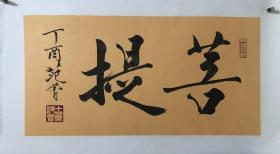 菩提
丁酉范曾